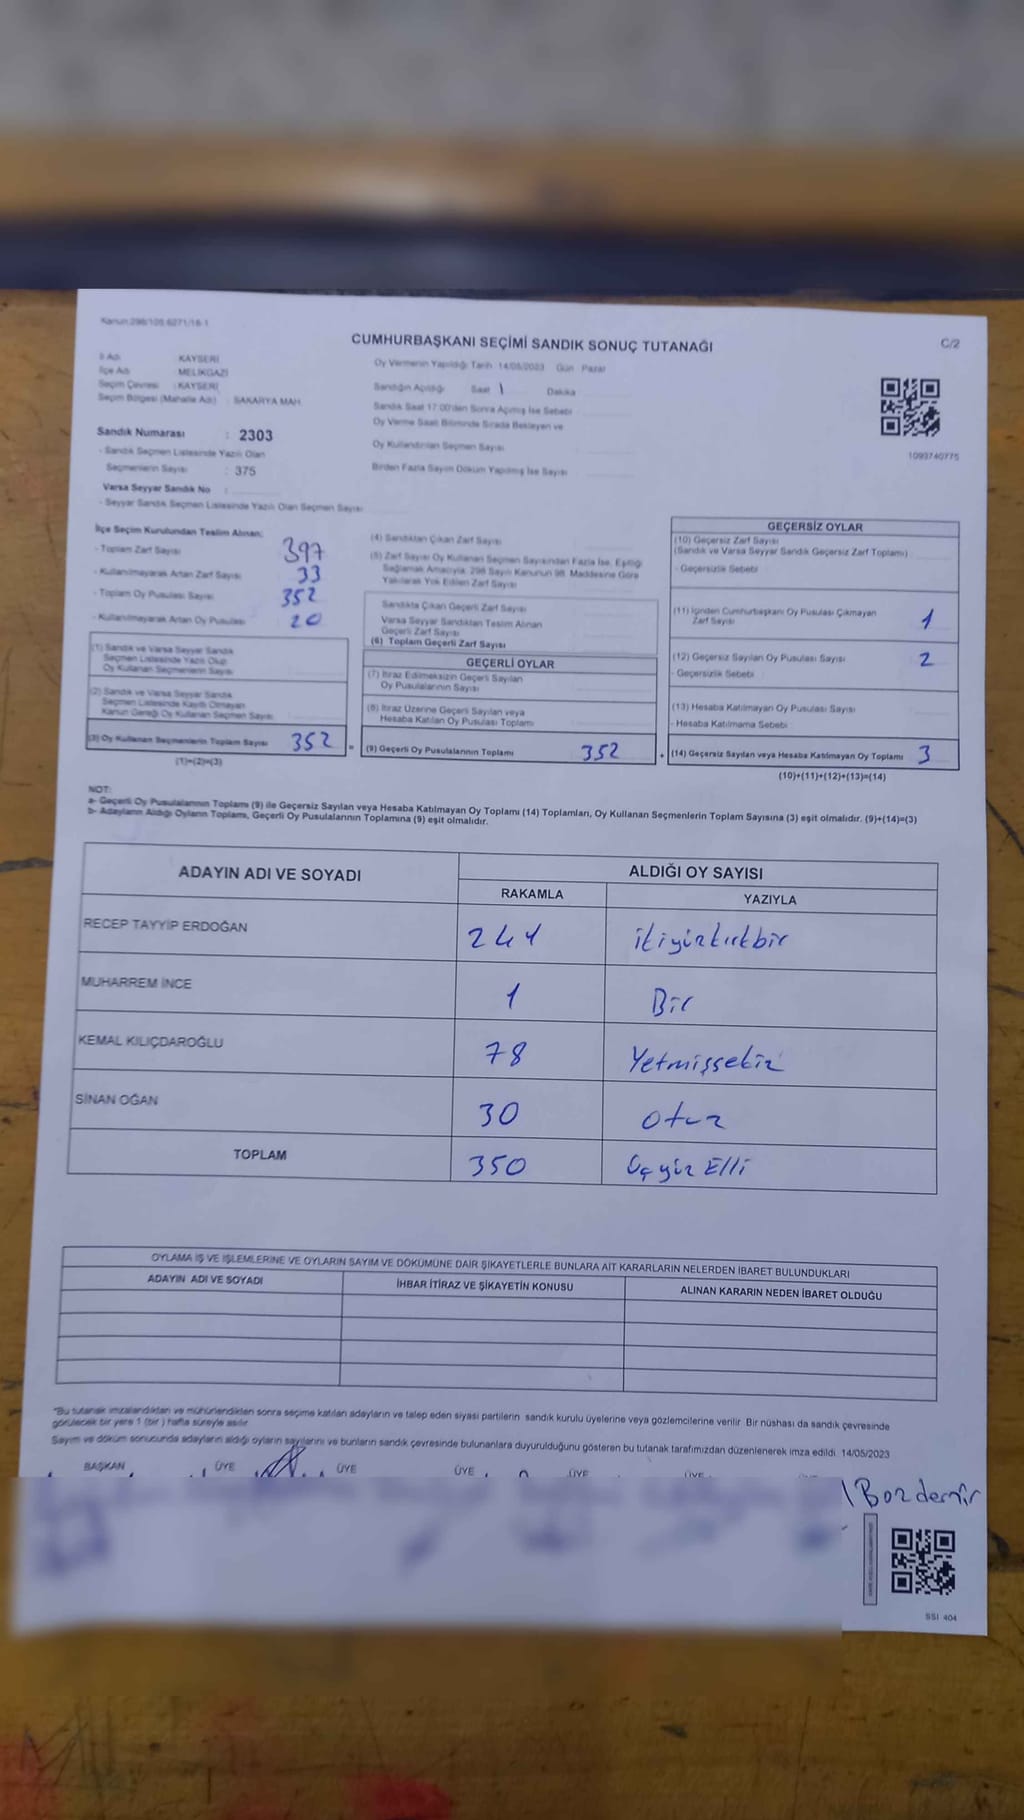 Kanun:298/105;6271/16-1
CUMHURBAŞKANI SEÇİMİ SANDIK SONUÇ TUTANAĞI
C/2
İl Adı : KAYSERİ
İlçe Adı : MELİKGAZİ
Seçim Çevresi : KAYSERİ
Seçim Bölgesi (Mahalle Adı) : SAKARYA MAH.
Sandık Numarası : 2303
- Sandık Seçmen Listesinde Yazılı Olan
Seçmenlerin Sayısı : 375
Varsa Seyyar Sandık No :
- Seyyar Sandık Seçmen Listesinde Yazılı Olan Seçmen Sayısı
Oy Vermenin Yapıldığı Tarih 14/05/2023 Gün Pazar
Sandığın Açıldığı Saat Dakika
Sandık Saat 17:00'den Sonra Açılmış İse Sebebi
Oy Verme Saati Bitiminde Sırada Bekleyen ve
Oy Kullandırılan Seçmen Sayısı
Birden Fazla Sayım Döküm Yapılmış İse Sayısı
1093740775
İlçe Seçim Kurulundan Teslim Alınan;
- Toplam Zarf Sayısı 397
- Kullanılmayarak Artan Zarf Sayısı 33
- Toplam Oy Pusulası Sayısı 352
- Kullanılmayarak Artan Oy Pusulası 20
(1) Sandık ve Varsa Seyyar Sandık
Seçmen Listesinde Yazılı Olup
Oy Kullanan Seçmenlerin Sayısı
(2) Sandık ve Varsa Seyyar Sandık
Seçmen Listesinde Kayıtlı Olmayan
Kanun Gereği Oy Kullanan Seçmen Sayısı
(3) Oy Kullanan Seçmenlerin Toplam Sayısı 352
(1)+(2)=(3)
(4) Sandıktan Çıkan Zarf Sayısı
(5) Zarf Sayısı Oy Kullanan Seçmen Sayısından Fazla İse, Eşitliği
Sağlamak Amacıyla, 298 Sayılı Kanunun 98. Maddesine Göre
Yakılarak Yok Edilen Zarf Sayısı
Sandıkta Çıkan Geçerli Zarf Sayısı
Varsa Seyyar Sandıktan Teslim Alınan
Geçerli Zarf Sayısı
(6) Toplam Geçerli Zarf Sayısı
GEÇERLİ OYLAR
(7) İtiraz Edilmeksizin Geçerli Sayılan
Oy Pusulalarının Sayısı
(8) İtiraz Üzerine Geçerli Sayılan veya
Hesaba Katılan Oy Pusulası Toplamı
= (9) Geçerli Oy Pusulalarının Toplamı 352
GEÇERSİZ OYLAR
(10) Geçersiz Zarf Sayısı
(Sandık ve Varsa Seyyar Sandık Geçersiz Zarf Toplamı)
- Geçersizlik Sebebi
(11) İçinden Cumhurbaşkanı Oy Pusulası Çıkmayan
Zarf Sayısı 1
(12) Geçersiz Sayılan Oy Pusulası Sayısı 2
- Geçersizlik Sebebi
(13) Hesaba Katılmayan Oy Pusulası Sayısı
- Hesaba Katılmama Sebebi
+ (14) Geçersiz Sayılan veya Hesaba Katılmayan Oy Toplamı 3
(10)+(11)+(12)+(13)=(14)
NOT:
a- Geçerli Oy Pusulalarının Toplamı (9) ile Geçersiz Sayılan veya Hesaba Katılmayan Oy Toplamı (14) Toplamları, Oy Kullanan Seçmenlerin Toplam Sayısına (3) eşit olmalıdır. (9)+(14)=(3)
b- Adayların Aldığı Oyların Toplamı, Geçerli Oy Pusulalarının Toplamına (9) eşit olmalıdır.
ADAYIN ADI VE SOYADI ALDIĞI OY SAYISI
RAKAMLA YAZIYLA
RECEP TAYYİP ERDOĞAN 241 ikiyüzkırkbir
MUHARREM İNCE 1 Bir
KEMAL KILIÇDAROĞLU 78 Yetmişsekiz
SİNAN OĞAN 30 otuz
TOPLAM 350 Üçyüz Elli
OYLAMA İŞ VE İŞLEMLERİNE VE OYLARIN SAYIM VE DÖKÜMÜNE DAİR ŞİKAYETLERLE BUNLARA AİT KARARLARIN NELERDEN İBARET BULUNDUKLARI
ADAYIN ADI VE SOYADI İHBAR İTİRAZ VE ŞİKAYETİN KONUSU ALINAN KARARIN NEDEN İBARET OLDUĞU
"Bu tutanak imzalandıktan ve mühürlendikten sonra seçime katılan adayların ve talep eden siyasi partilerin sandık kurulu üyelerine veya gözlemcilerine verilir. Bir nüshası da sandık çevresinde
görülecek bir yere 1 (bir) hafta süreyle asılır.
Sayım ve döküm sonucunda adayların aldığı oyların sayılarını ve bunların sandık çevresinde bulunanlara duyurulduğunu gösteren bu tutanak tarafımızdan düzenlenerek imza edildi. 14/05/2023
BAŞKAN ÜYE ÜYE ÜYE ÜYE ÜYE
Bozdemir
SSI 404